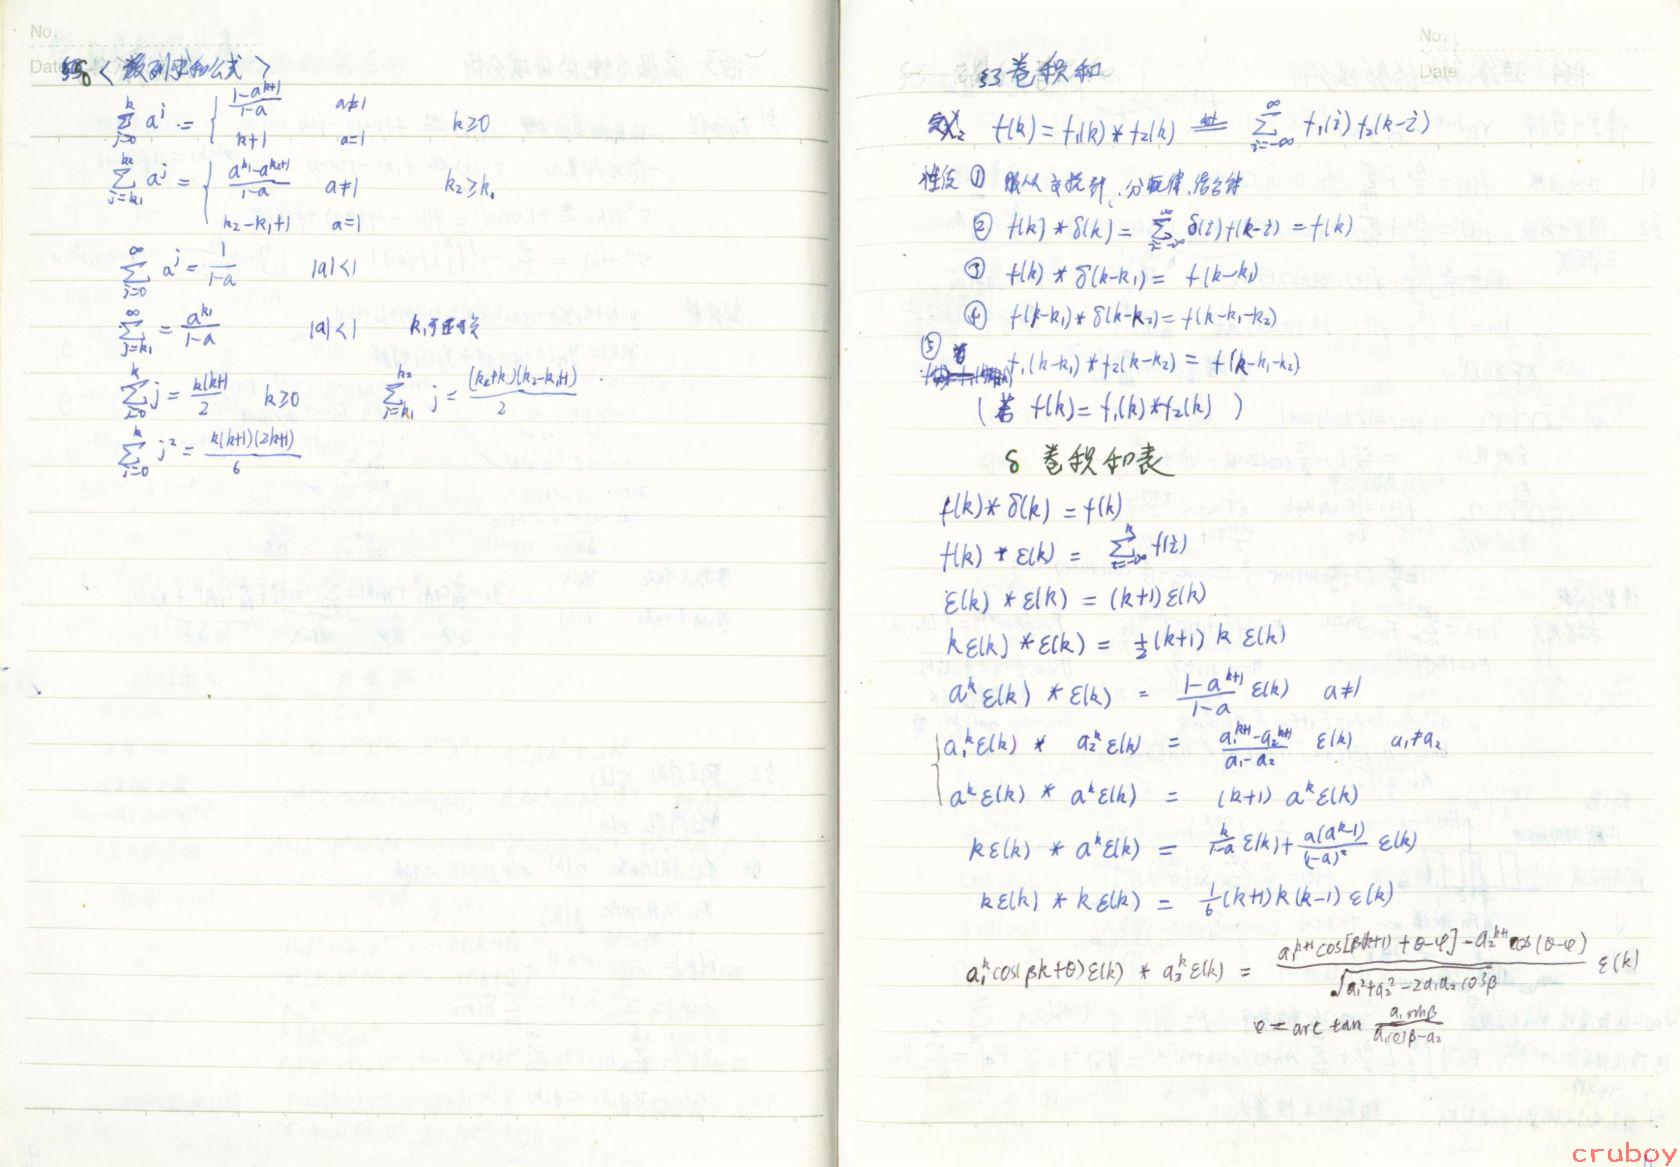 No.
Date
§ <数列求和公式>
∑_{j=0}^{k} a^j = { (1-a^{k+1})/(1-a)  a≠1
k+1  a=1  k≥0
∑_{j=k₁}^{k₂} a^j = { (a^{k₁}-a^{k₂+1})/(1-a)  a≠1  k₂≥k₁
k₂-k₁+1  a=1
∑_{j=0}^{∞} a^j = 1/(1-a)  |a|<1
∑_{j=k₁}^{∞} = a^{k₁}/(1-a)  |a|<1  k₁可正可负
∑_{j=0}^{k} j = k(k+1)/2  k≥0  ∑_{j=k₁}^{k₂} j = (k₂+k₁)(k₂-k₁+1)/2
∑_{j=0}^{k} j² = k(k+1)(2k+1)/6
No.
Date
§3 卷积和
定义 f(k) = f₁(k) * f₂(k) def ∑_{i=-∞}^{∞} f₁(i) f₂(k-i)
性质 ① 服从交换律、分配律、结合律
② f(k) * δ(k) = ∑_{i=-∞}^{∞} δ(i) f(k-i) = f(k)
③ f(k) * δ(k-k₁) = f(k-k₁)
④ f(k-k₁) * δ(k-k₂) = f(k-k₁-k₂)
⑤ f₁(k-k₁) * f₂(k-k₂) = f(k-k₁-k₂)
(若 f(k) = f₁(k) * f₂(k) )
§ 卷积和表
f(k) * δ(k) = f(k)
f(k) * ε(k) = ∑_{i=-∞}^{k} f(i)
ε(k) * ε(k) = (k+1) ε(k)
kε(k) * ε(k) = ½(k+1) k ε(k)
a^k ε(k) * ε(k) = (1-a^{k+1})/(1-a) ε(k)  a≠1
a₁^k ε(k) * a₂^k ε(k) = (a₁^{k+1}-a₂^{k+1})/(a₁-a₂) ε(k)  a₁≠a₂
a^k ε(k) * a^k ε(k) = (k+1) a^k ε(k)
kε(k) * a^k ε(k) = k/(1-a) ε(k) + a(a^k-1)/(1-a)² ε(k)
kε(k) * kε(k) = 1/6 (k+1) k (k-1) ε(k)
a₁^k cos(βk+θ) ε(k) * a₂^k ε(k) = (a₁^{k+1} cos[β(k+1)+θ-φ] - a₂^{k+1} cos(θ-φ))/√(a₁²+a₂²-2a₁a₂cosβ) ε(k)
φ = arc tan (a₁ sinβ)/(a₁cosβ-a₂)
cruboy